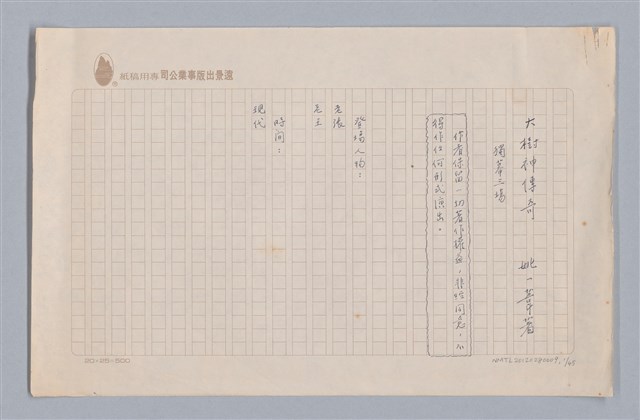 遠景出版事業公司專用稿紙
大樹神傳奇 姚一葦著
獨幕三場
作者保留一切著作權益，非經同意，不
得作任何形式演出。
登場人物：
老張
老王
時間：
現代
20×25=500